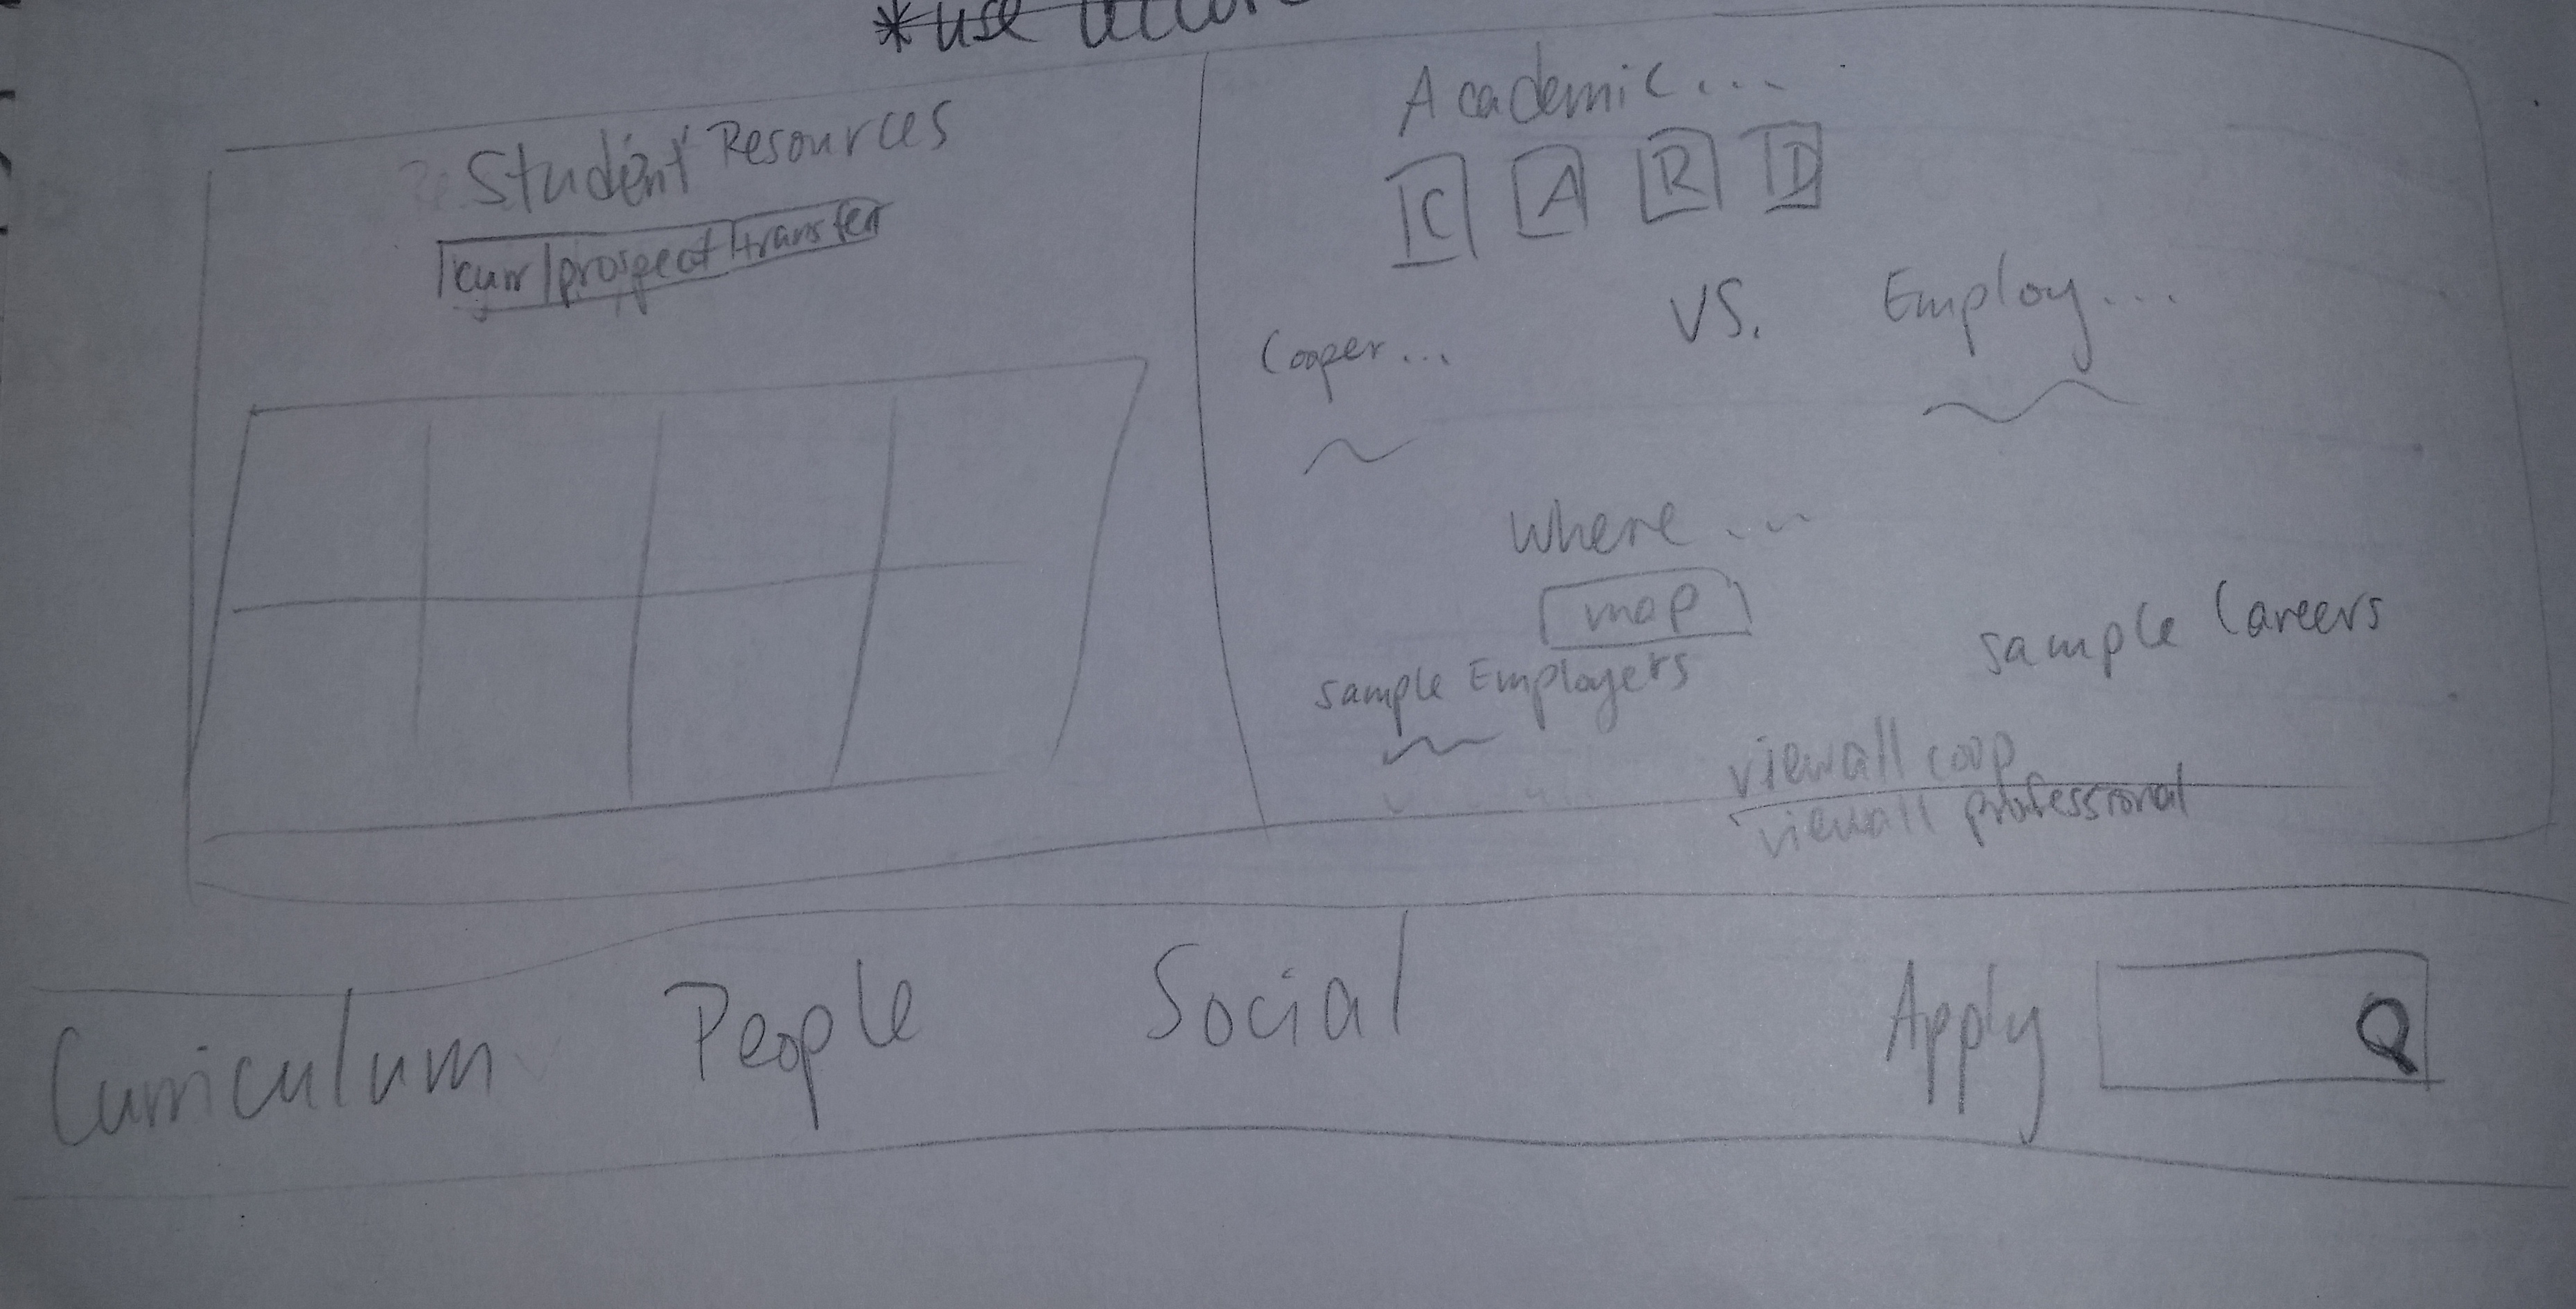 *use
Student Resources
curr/prospect transfer
Academic...
C A R D
Cooper... VS. Employ...
Where...
map
sample Employers
sample Careers
view all coop
view all professional
Curriculum People Social Apply